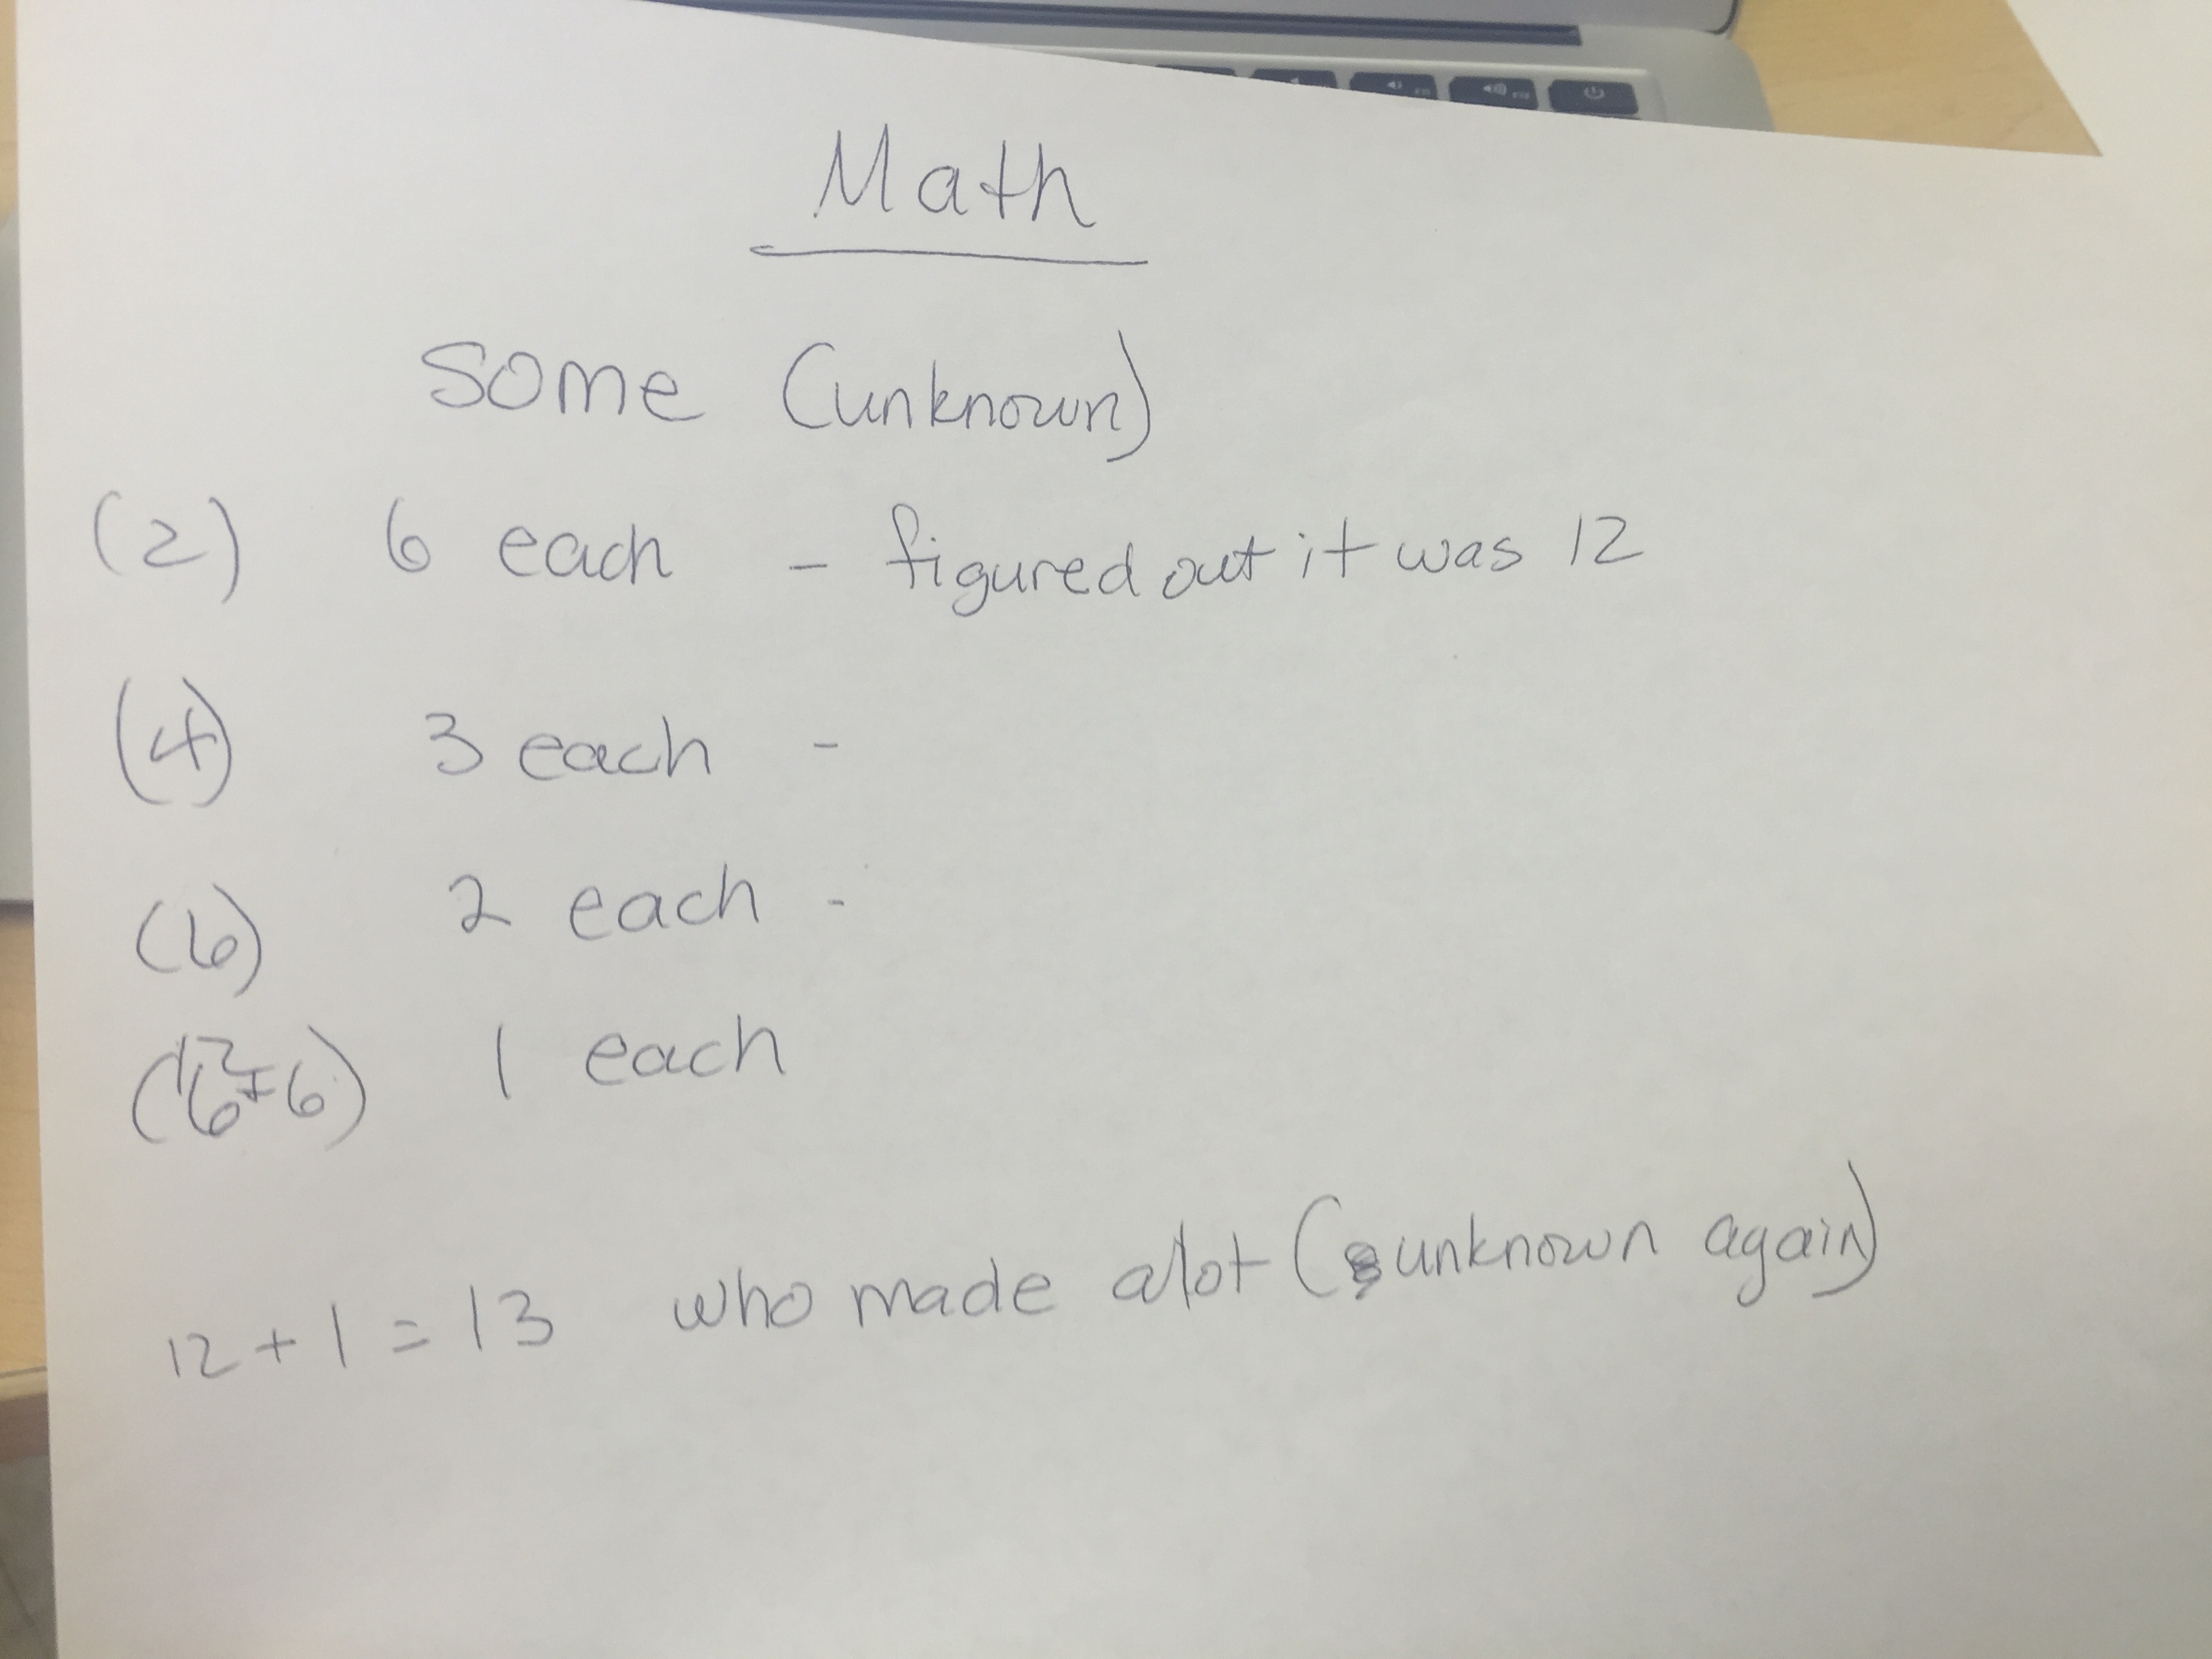 Math
some (unknown)
(2) 6 each - figured out it was 12
(4) 3 each -
(6) 2 each -
(6+6) 1 each
12 + 1 = 13 who made alot (unknown again)